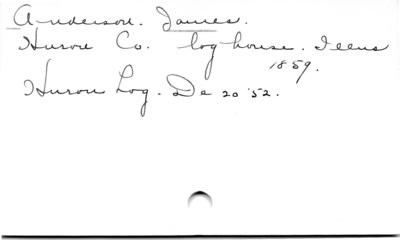 Anderson. James.
Huron Co. log house. Illus
1859.
Huron Log. De 20 '52.